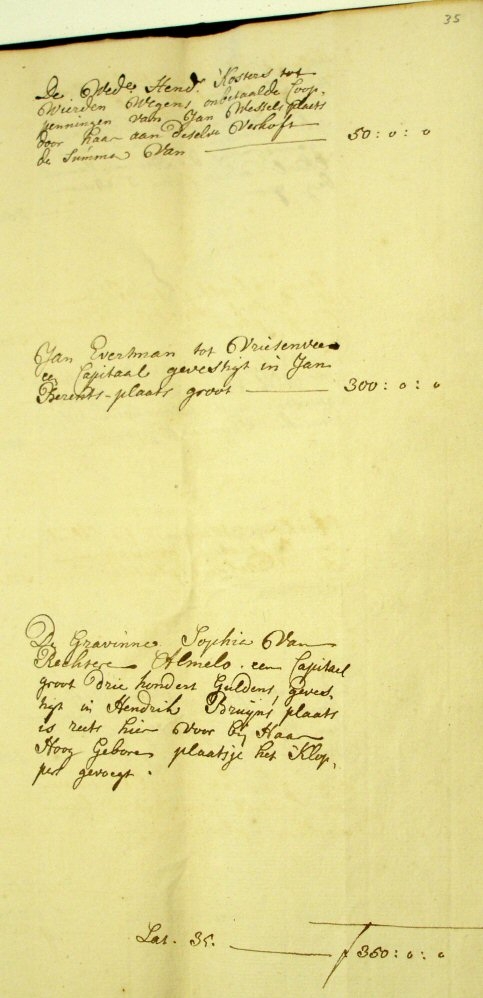 35
De Wede Hend. Kosters tot
Wierden Wegens onbetaalde Coop-
penningen van Jan Wessels plaats
door haar aan deselve Verkoft
de Summa Van 50 : 0 : 0
Jan Evertman tot Vriesenvee
ee Capitaal gevestigt in Jan
Berents-plaats groot 300 : 0 : 0
De Gravinne Sophia Van
Rechtere Almelo een Capitael
groot drie hondert Guldens, geves-
tigt in Hendrik Bruijns plaats
is reets hier voor bij Haar
Hoog Gebore plaatsje het Klop-
pert gevoegt.
Lat. 35. f 350 : 0 : 0